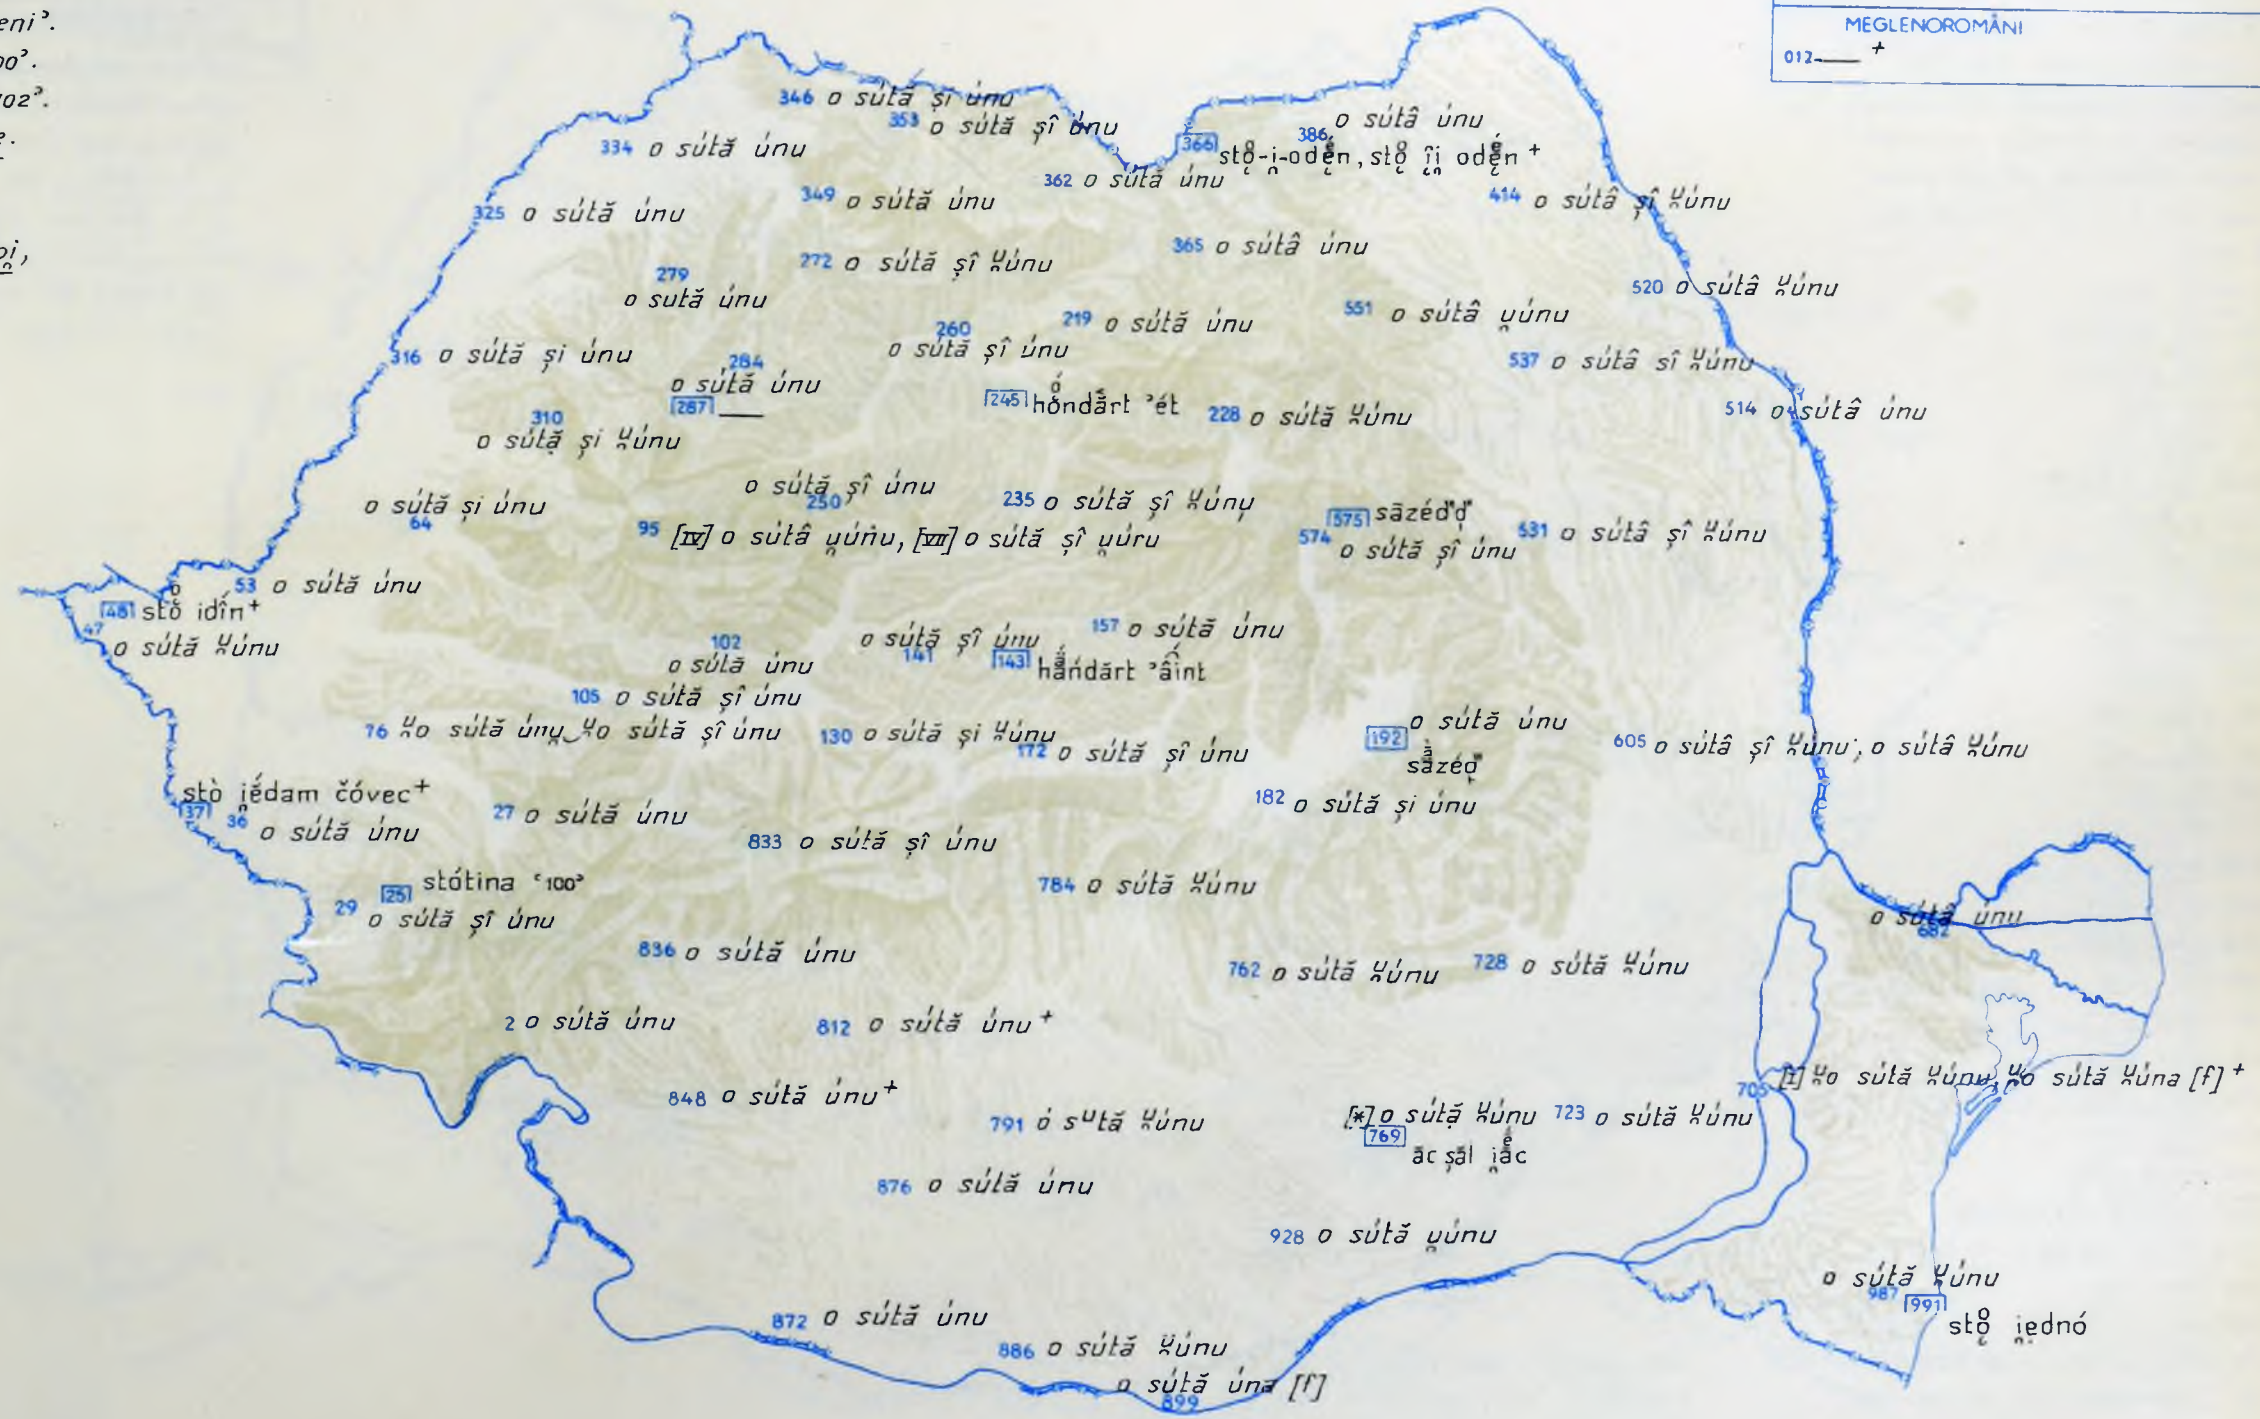 eni’.
00’.
702’.
MEGLENOROMÂNI
012 —— +
346 o sútă și únu
353 o sútă șî únu
334 o sútă únu
386 o sútâ únu
[366] sto̥-i̯-odén, sto̥ îi̯ odén +
362 o sútă únu
325 o sútă únu
349 o sútă únu
414 o sútâ șî ᵘúnu
365 o sútâ únu
272 o sútă șî ᵘúnu
279 o sută únu
520 o sútâ ᵘúnu
551 o sútâ u̯únu
219 o sútă únu
260 o sútă șî únu
316 o sútă și únu
284 o sútă únu
[287] ——
537 o sútâ sî ᵘúnu
[245] hóndắrt ’ét
228 o sútă ᵘúnu
514 o sútâ únu
310 o sútă și ᵘúnu
64 o sútă și únu
250 o sútă șî únu
235 o sútă șî ᵘúnu
[575] săzéd
574 o sútă șî únu
531 o sútâ șî ᵘúnu
95 [IV] o sútâ u̯úñu, [VII] o sútă șî u̯úru
53 o sútă únu
[48] stó idín +
47 o sútă ᵘúnu
102 o sútă únu
141 o sútă șî únu
157 o sútă únu
[143] hắndărt ’âínt
105 o sútă șî únu
76 ᵘo sútă únu, ᵘo sútă șî únu
130 o sútă și ᵘúnu
172 o sútă șî únu
o sútă únu
[192] săzéd
605 o sútâ șî ᵘúnu; o sútâ ᵘúnu
182 o sútă și únu
[37] stò i̯édam čóvec +
36 o sútă únu
27 o sútă únu
833 o sútă șî únu
[25] stótina ‘100’
29 o sútă șî únu
784 o sútă ᵘúnu
682 o sútâ únu
836 o sútă únu
762 o sútă ᵘúnu
728 o sútă ᵘúnu
2 o sútă únu
812 o sútă únu +
705 [I] ᵘo sútă ᵘúnu, ᵘo sútă ᵘúna [f] +
848 o sútă únu +
791 ó sᵘtă ᵘúnu
[*] o sútă ᵘúnu
[769] ăc șăl i̯ắc
723 o sútă ᵘúnu
876 o sútă únu
928 o sútă u̯únu
987 o sútă ᵘúnu
[991] sto̥ i̯ednó
872 o sútă únu
886 o sútă ᵘúnu
899 o sútă úna [f]